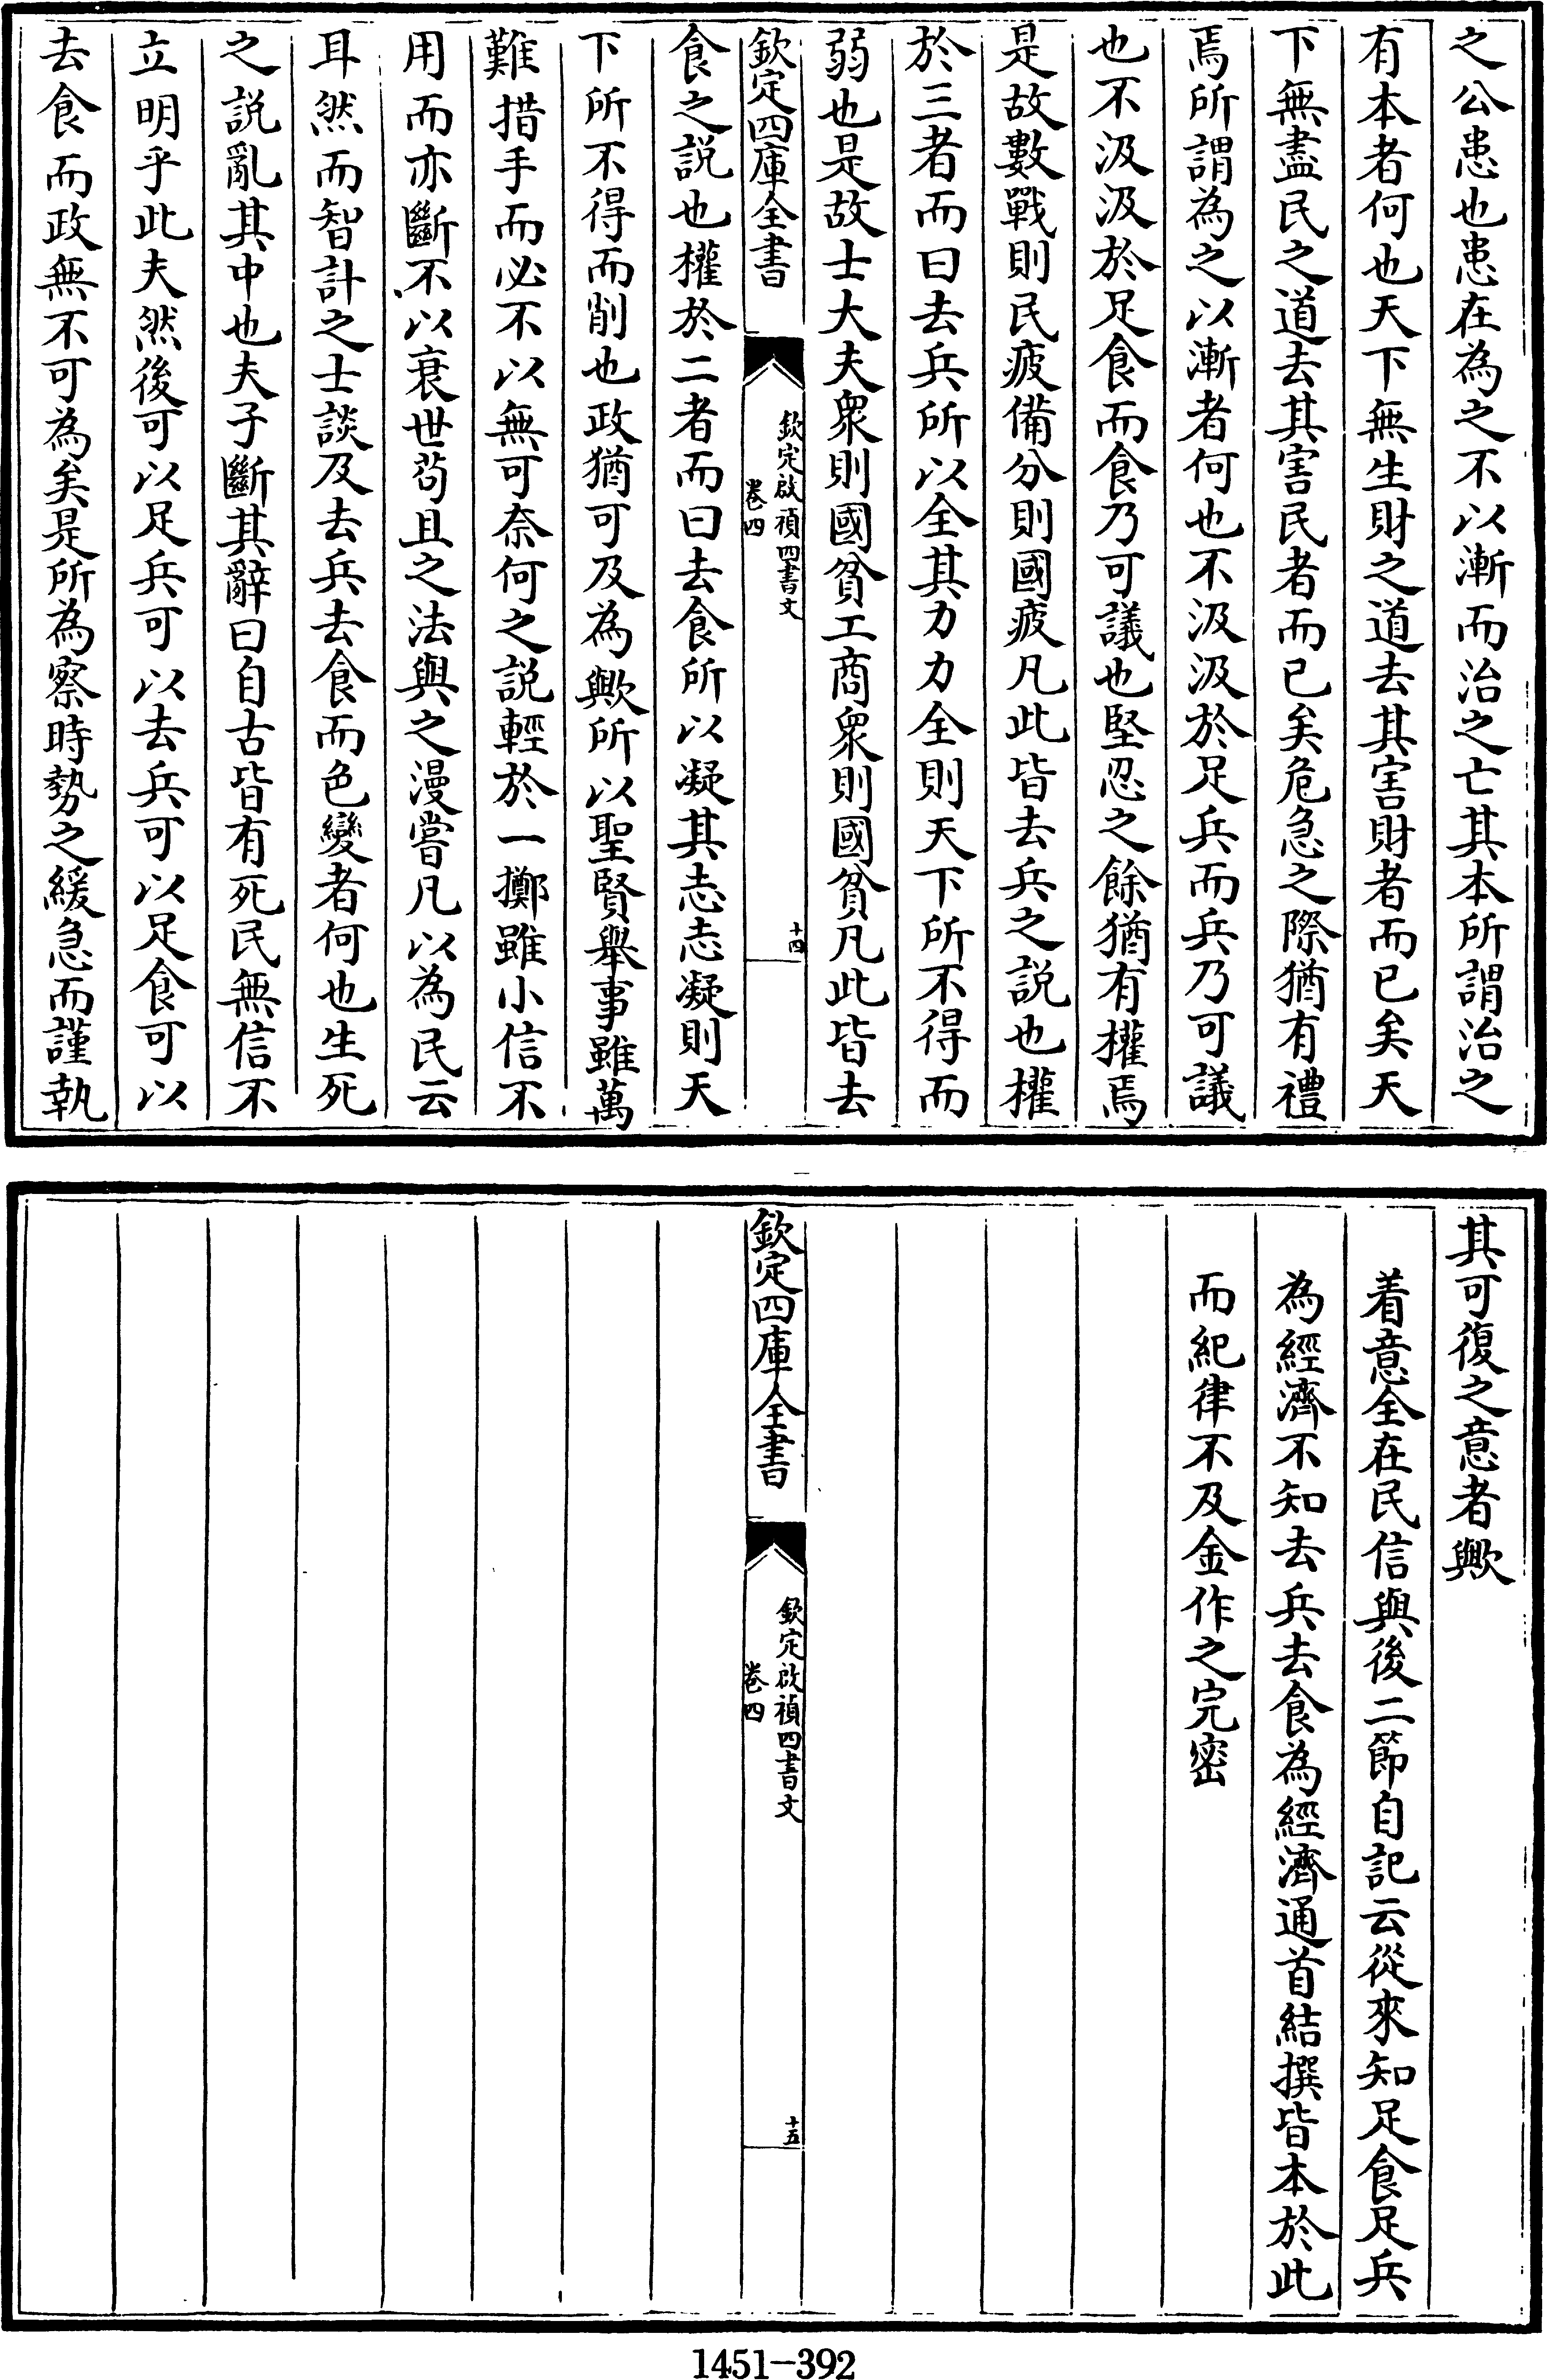 之公患也患在為之不以漸而治之亡其本所謂治之
有本者何也天下無生財之道去其害財者而已矣天
下無盡民之道去其害民者而已矣危急之際猶有禮
焉所謂為之以漸者何也不汲汲於足兵而兵乃可議
也不汲汲於足食而食乃可議也堅忍之餘猶有權焉
是故數戰則民疲備分則國疲凡此皆去兵之說也權
於三者而曰去兵所以全其力力全則天下所不得而
弱也是故士大夫衆則國貧工商衆則國貧凡此皆去
欽定四庫全書
欽定啟禎四書文
卷四
十四
食之說也權於二者而曰去食所以凝其志志凝則天
下所不得而削也政猶可及為歟所以聖賢舉事雖萬
難措手而必不以無可奈何之說輕於一擲雖小信不
用而亦斷不以衰世苟且之法與之漫嘗凡以為民云
耳然而智計之士談及去兵去食而色變者何也生死
之說亂其中也夫子斷其辭曰自古皆有死民無信不
立明乎此夫然後可以足兵可以去兵可以足食可以
去食而政無不可為矣是所為察時勢之緩急而謹執
其可復之意者歟
着意全在民信與後二節自記云從來知足食足兵
為經濟不知去兵去食為經濟通首結撰皆本於此
而紀律不及金作之完密
欽定四庫全書
欽定啟禎四書文
卷四
十五
1451-392